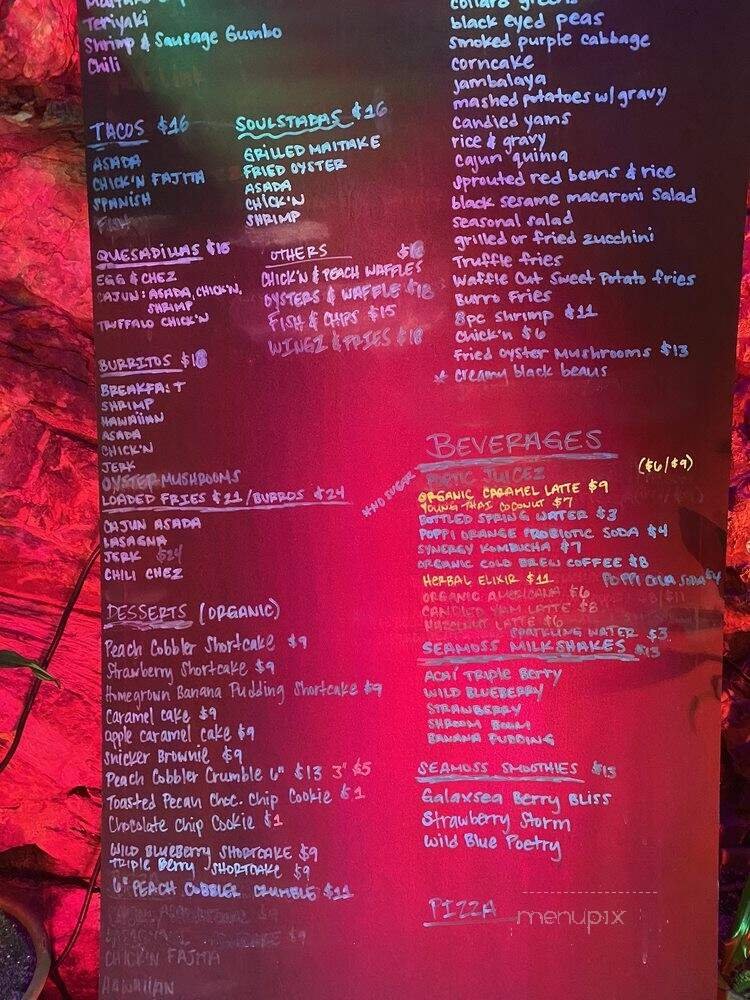 Teriyaki
Shrimp & Sausage Gumbo
Chili
TACOS $16
ASADA
CHICK'N FAJITA
SPANISH
FISH
SOULSTADAS $16
GRILLED MAITAKE
FRIED OYSTER
ASADA
CHICK'N
SHRIMP
QUESADILLAS $15
EGG & CHEZ
CAJUN: ASADA, CHICK'N,
SHRIMP
TRUFFALO CHICK'N
OTHERS
CHICK'N & PEACH WAFFLES
OYSTERS & WAFFLE $18
FISH & CHIPS $15
WINGZ & FRIES $18
BURRITOS $18
BREAKFAST
SHRIMP
HAWAIIAN
ASADA
CHICK'N
JERK
OYSTER MUSHROOMS
LOADED FRIES $21/BURROS $24
CAJUN ASADA
LASAGNA
JERK $24
CHILI CHEZ
DESSERTS (ORGANIC)
Peach Cobbler Shortcake $9
Strawberry Shortcake $9
Homegrown Banana Pudding Shortcake $9
Caramel cake $9
apple caramel cake $9
Snicker Brownie $9
Peach Cobbler Crumble 6" $13 3" $5
Toasted Pecan Choc. Chip Cookie $1
Chocolate Chip Cookie $1
WILD BLUEBERRY SHORTCAKE $9
TRIPLE BERRY SHORTCAKE $9
6" PEACH COBBLER CRUMBLE $11
CHICK'N FAJITA
HAWAIIAN
collard greens
black eyed peas
smoked purple cabbage
corncake
jambalaya
mashed potatoes w/ gravy
candied yams
rice & gravy
cajun quinoa
sprouted red beans & rice
black sesame macaroni salad
seasonal salad
grilled or fried zucchini
Truffle fries
Waffle Cut Sweet Potato fries
Burro Fries
8pc shrimp $11
Chick'n $6
Fried oyster Mushrooms $13
* creamy black beans
BEVERAGES
*NO SUGAR
POETIC JUICEZ ($6/$9)
ORGANIC CARAMEL LATTE $9
YOUNG THAI COCONUT $7
BOTTLED SPRING WATER $3
POPPI ORANGE PROBIOTIC SODA $4
SYNERGY KOMBUCHA $7
ORGANIC COLD BREW COFFEE $8
HERBAL ELIXIR $11 POPPI COLA SODA $4
ORGANIC AMERICANA $6
CANDIED YAM LATTE $8
HAZELNUT LATTE $6
SPARKLING WATER $3
SEAMOSS MILKSHAKES $13
ACAÍ TRIPLE BERRY
WILD BLUEBERRY
STRAWBERRY
SHROOM BOOM
BANANA PUDDING
SEAMOSS SMOOTHIES $13
Galaxsea Berry Bliss
Strawberry Storm
Wild Blue Poetry
PIZZA
menupix